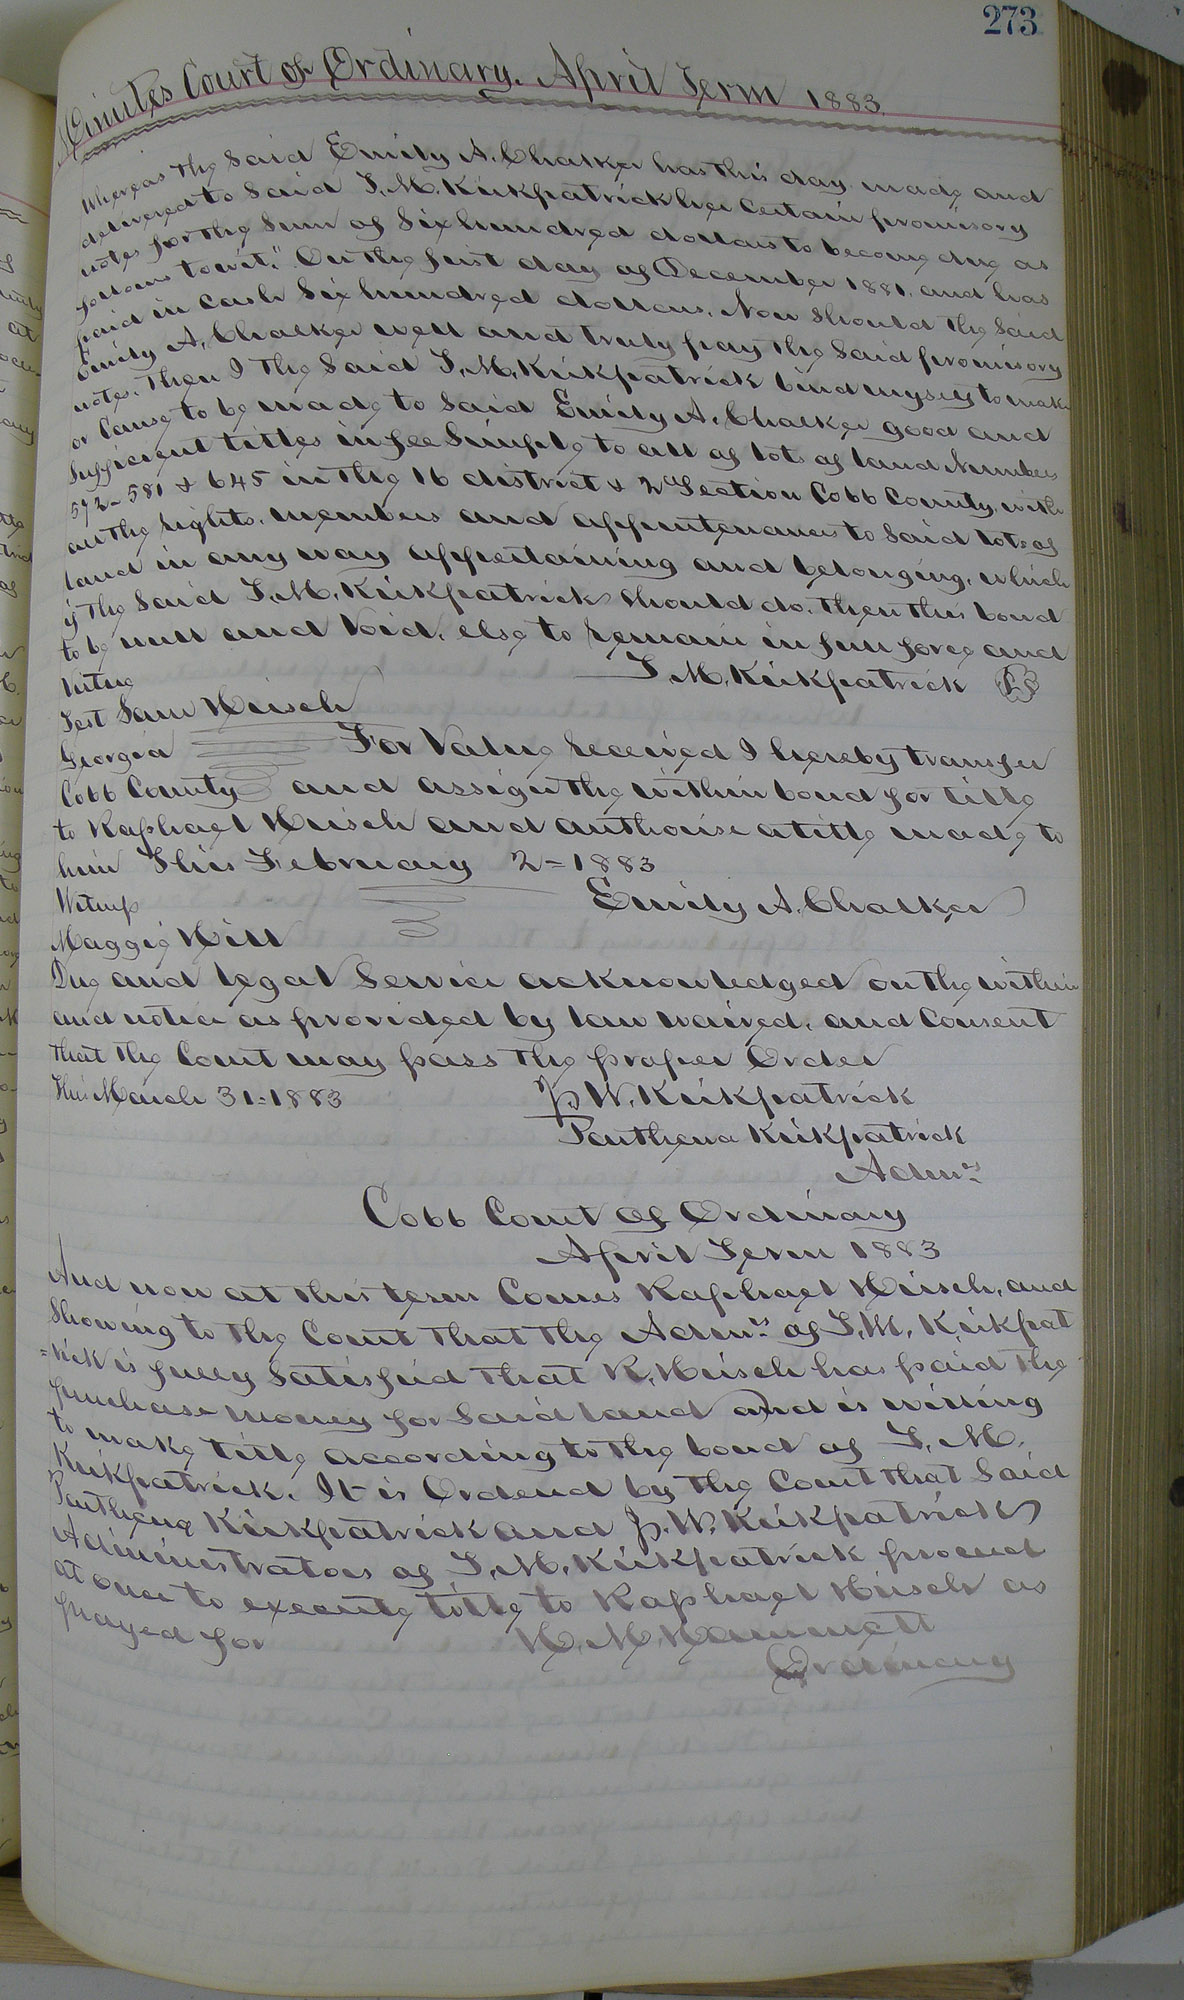 273
Minutes Court of Ordinary. April Term 1883.
Whereas the Said Emily A. Chalker has this day made and
delivered to Said T. M. Kirkpatrick her Certain promisory
notes for the Sum of Six hundred dollars to become due as
follows towit." On the first day of December 1881. and has
paid in Cash Six hundred dollars. Now Should the Said
Emily A. Chalker well and truly pay the Said promisory
notes. Then I the Said T. M. Kirkpatrick bind myself to make
or Cause to be made to Said Emily A. Chalker good and
Sufficient titles in fee Simple to all of lots of land Numbers
572 - 581 & 645 in the 16 district & 2d Section Cobb County, with
all the rights. members and appurtenances to Said lots of
land in any way appertaining and belonging, which
if the Said T. M. Kirkpatrick Should do. then this bond
to be null and Void. else to remain in full force and
Virtue
T. M. Kirkpatrick LS
Test Sam Hirsch
Georgia For Value received I hereby transfer
Cobb County and assign the within bond for title
to Raphael Hirsch and authorise a title made to
him This February 2 - 1883
Witness Emily A. Chalker
Maggie Hill
Due and legal Service acknowledged on the within
and notice as provided by law waived, and Consent
that the Court may pass the proper Order
This March 31 - 1883 J. W. Kirkpatrick
Parthena Kirkpatrick
Admrs
Cobb Court of Ordinary
April Term 1883
And now at this term Comes Raphael Hirsch, and
Showing to the Court that the Admrs of T. M. Kirkpat
=rick is fully Satisfied that R. Hirsch has paid the
purchase money for Said land and is willing
to make title according to the bond of T. M.
Kirkpatrick. It is Ordered by the Court that Said
Parthena Kirkpatrick and J. W. Kirkpatrick
Administrators of T. M. Kirkpatrick proceed
at once to execute title to Raphael Hirsch as
prayed for H. M. Hammett
Ordinary